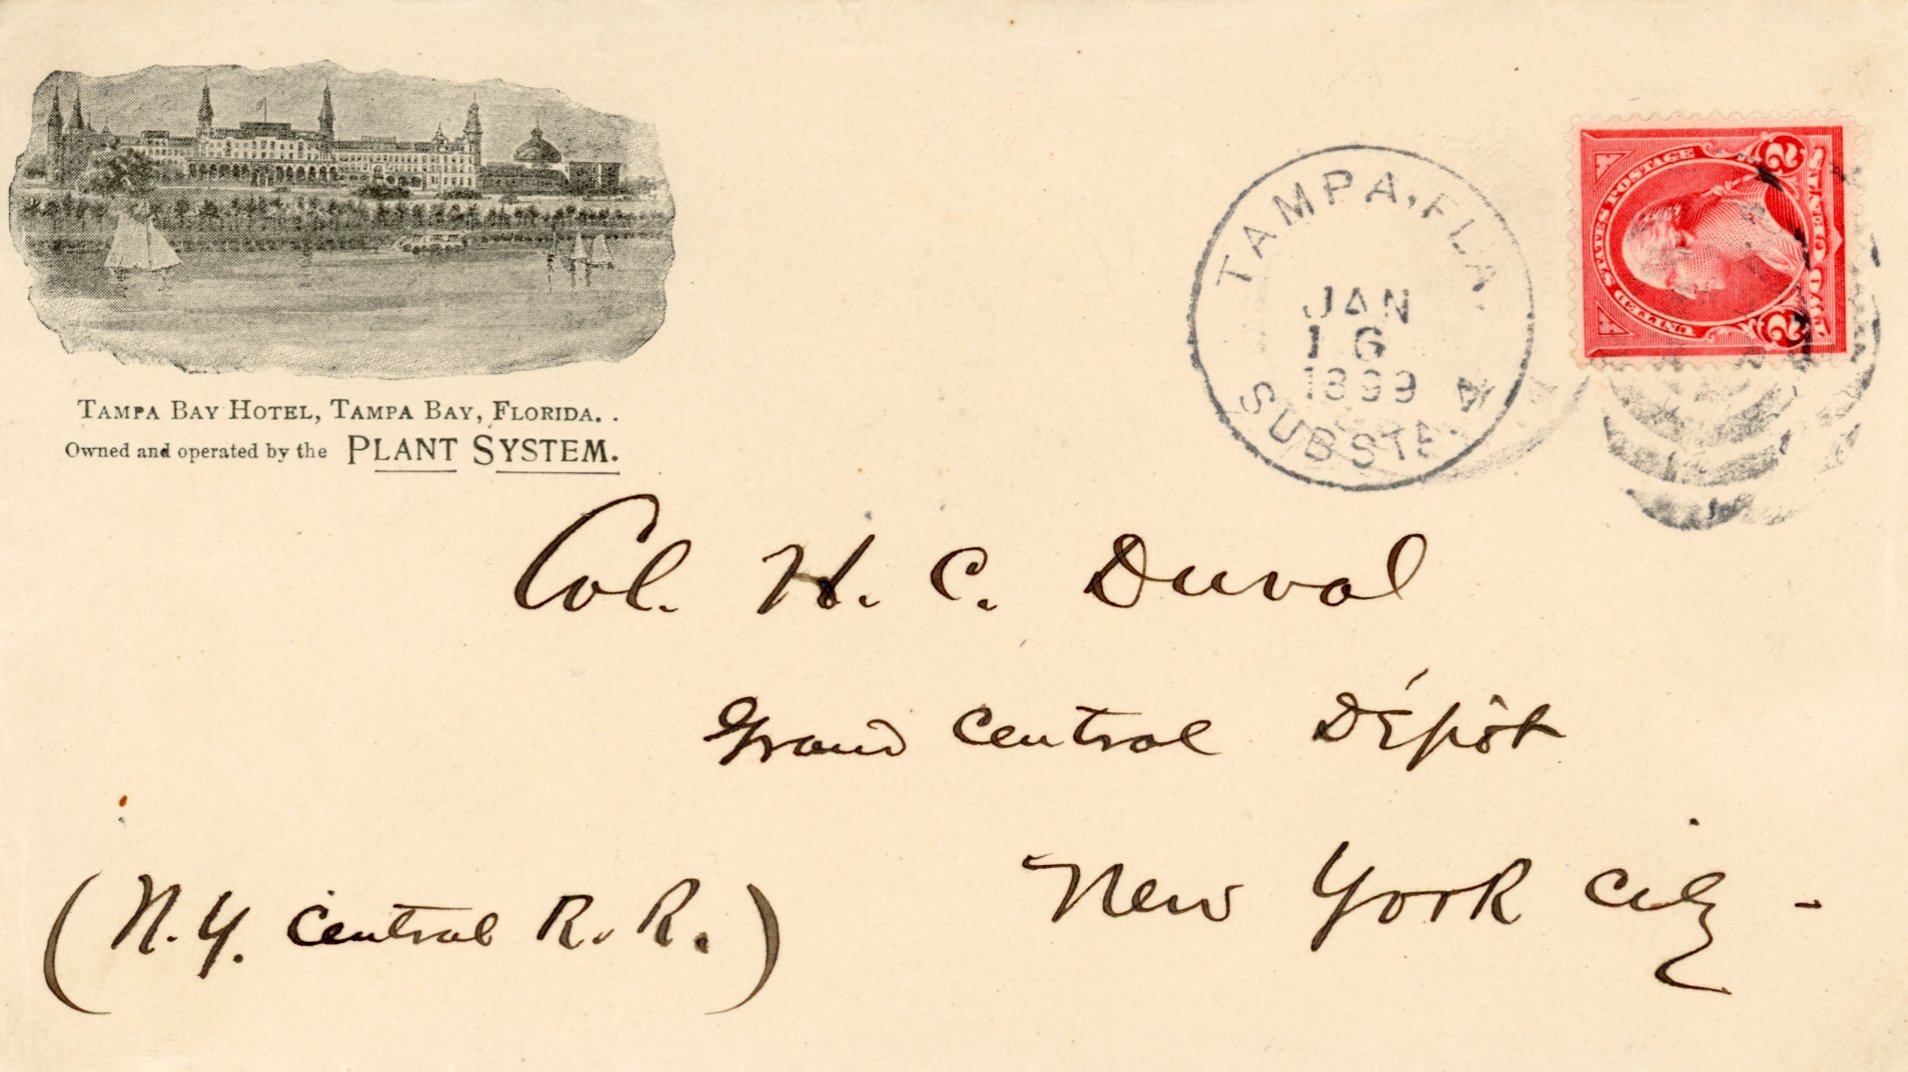 TAMPA BAY HOTEL, TAMPA BAY, FLORIDA. .
Owned and operated by the PLANT SYSTEM.
TAMPA, FLA.
JAN
16
1899
SUBSTA. A
UNITED STATES POSTAGE
2 2
TWO CENTS
Col. H. C. Duval
Grand Central Dépôt
New York City -
(N. Y. Central R. R.)